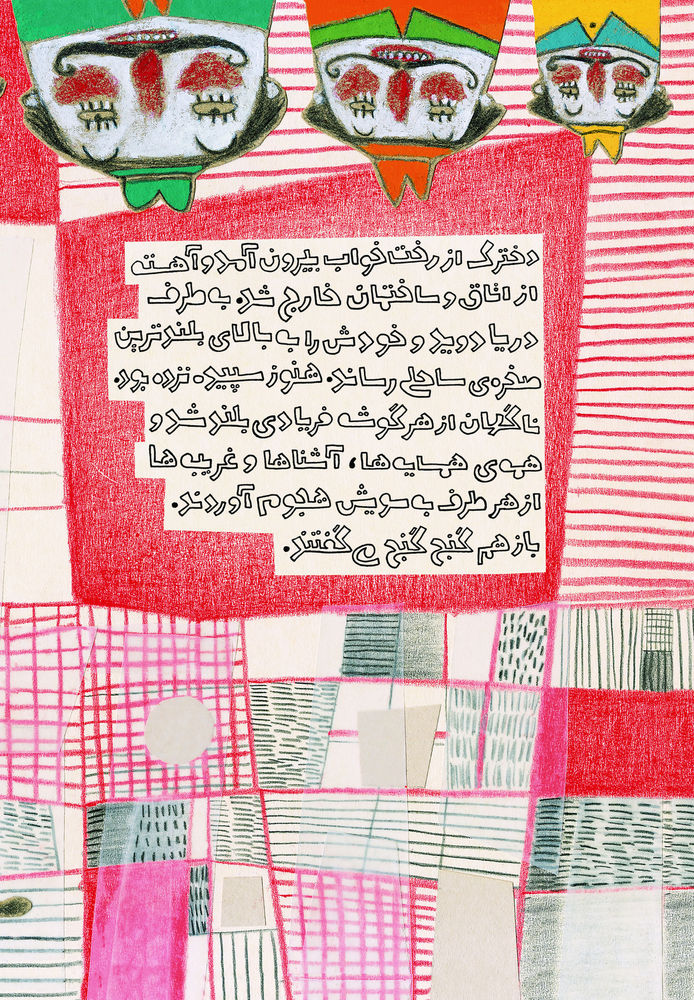 دخترک از رختخواب بیرون آمد و آهسته
از اتاق و ساختمان خارج شد. به طرف
دریا دوید و خودش را به بالای بلندترین
صخره‌ی ساحلی رساند. هنوز سپیده نزده بود.
ناگهان از هر گوشه فریادی بلند شد و
همه‌ی همسایه‌ها، آشناها و غریبه‌ها
از هر طرف به سویش هجوم آوردند.
باز هم گنج گنج می‌گفتند.